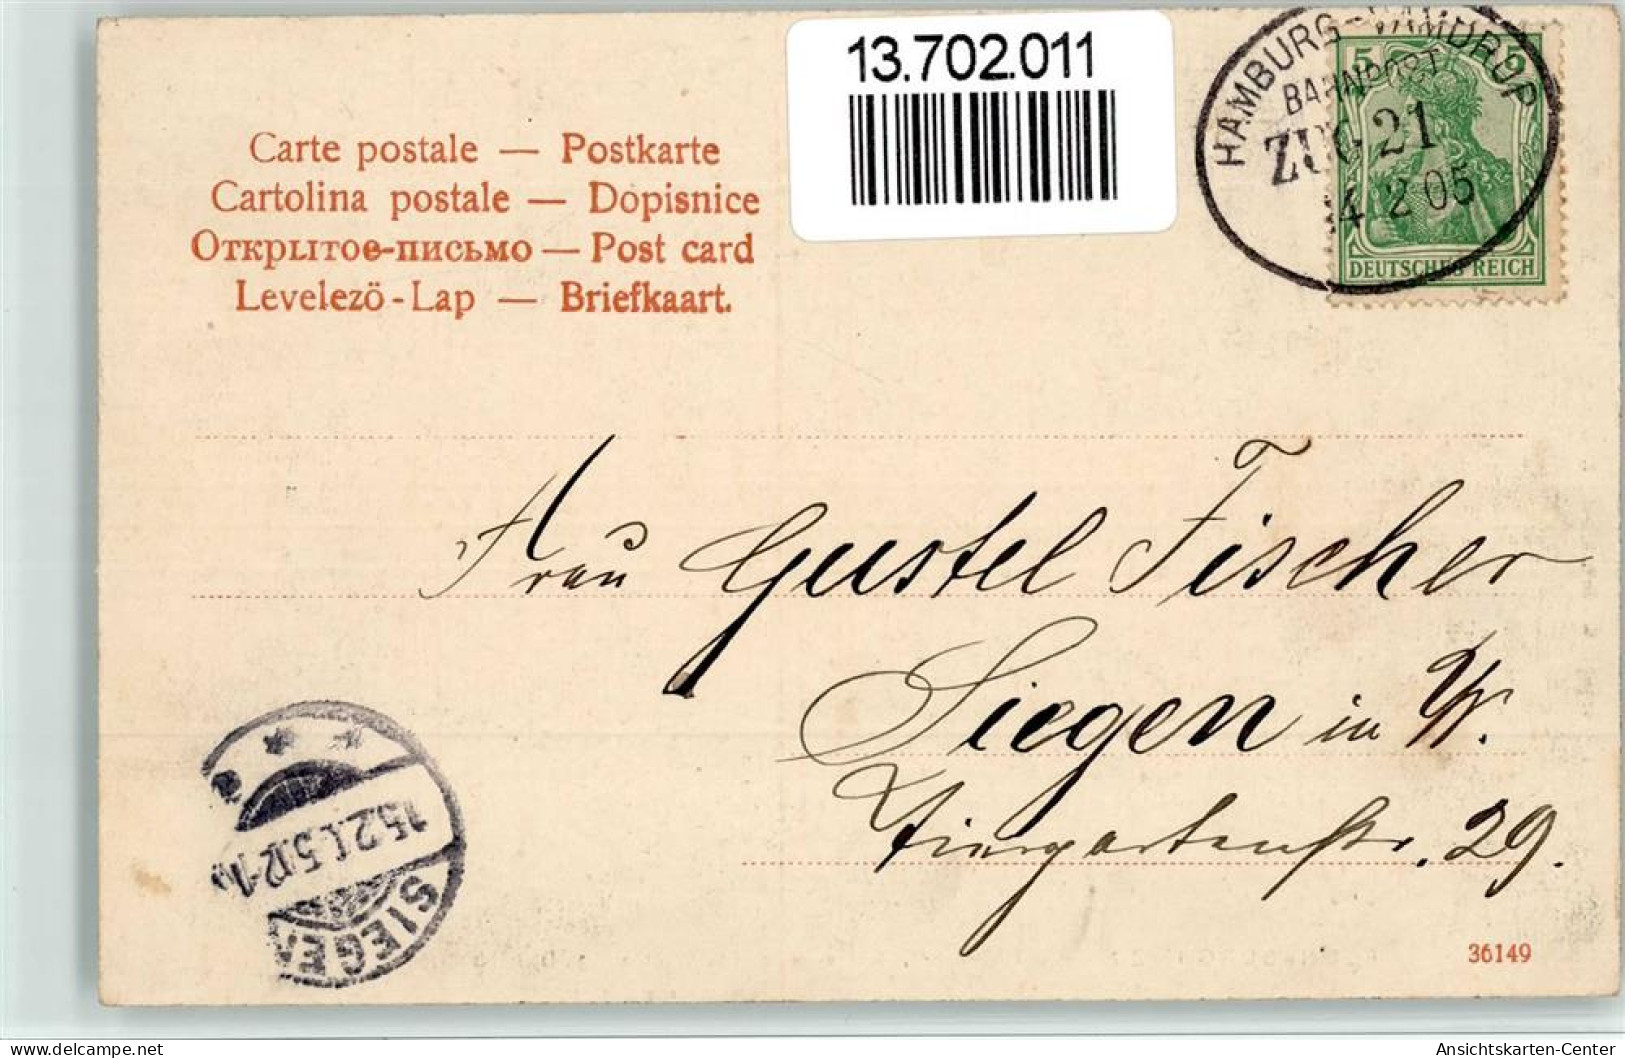 13.702.011
HAMBURG-VAMDRUP
BAHNPOST
ZUG 21
4 2 05
5 5
DEUTSCHES REICH
Carte postale — Postkarte
Cartolina postale — Dopisnice
Открытое-письмо — Post card
Levelező-Lap — Briefkaart.
Frau Gustel Fischer
Siegen in W.
Tiergartenstr. 29.
15.2.05.12-1
SIEGEN
36149
Ansichtskarten-Center
delcampe.net